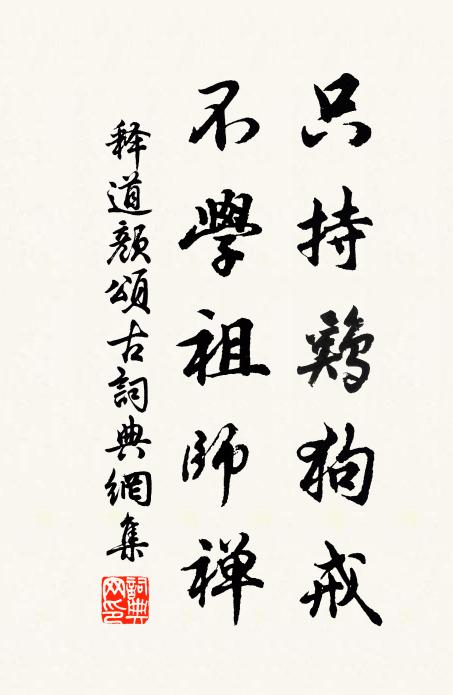 只持鷄狗戒
不學祖師禅
释道颜頌古詞典網集
詞典網印